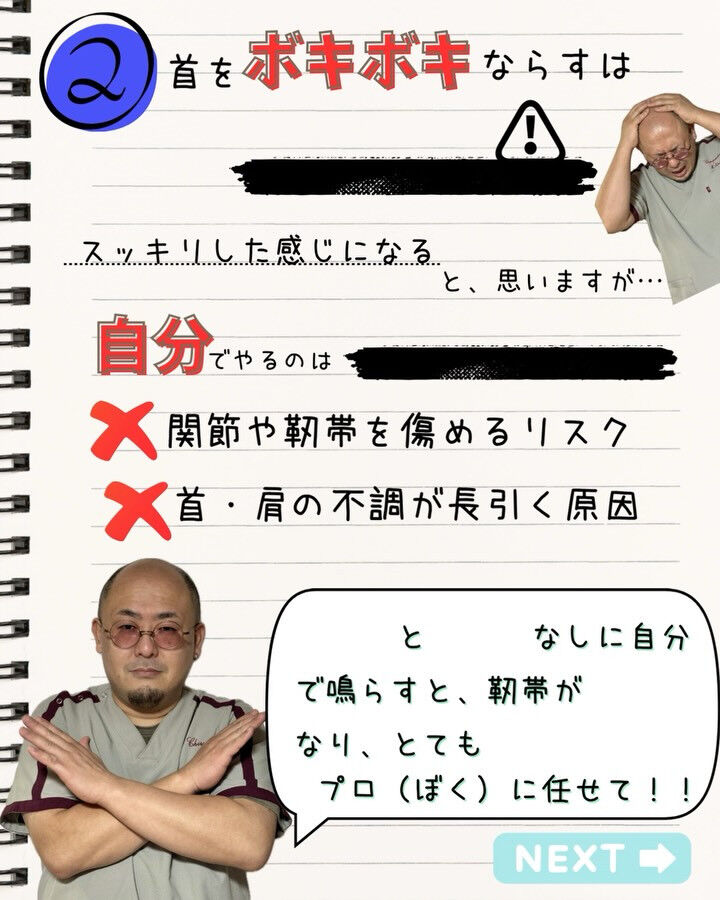 2
首をボキボキならすは
スッキリした感じになる
と、思いますが…
自分でやるのは
関節や靭帯を傷めるリスク
首・肩の不調が長引く原因
と なしに自分
で鳴らすと、靭帯が
なり、とても
プロ（ぼく）に任せて！！
NEXT